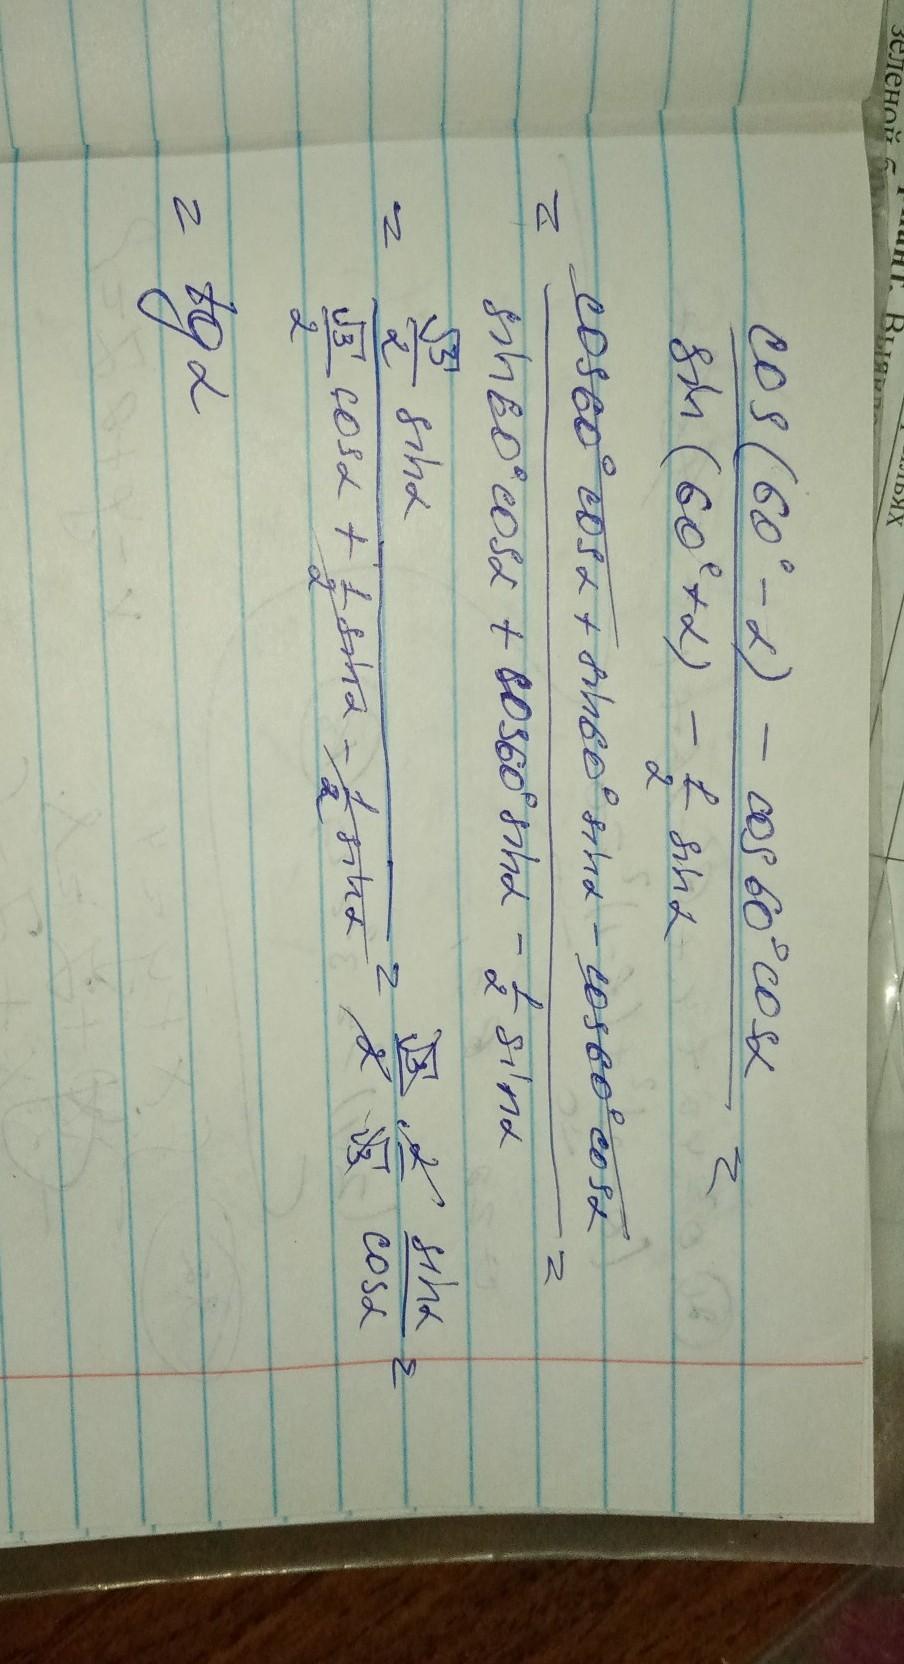 зеленой
cos(60°-α) - cos60°cosα
sin(60°+α) - 1/2 sinα
=
= cos60°cosα + sin60°sinα - cos60°cosα
sin60°cosα + cos60°sinα - 1/2 sinα
=
= √3/2 sinα
√3/2 cosα + 1/2 sinα - 1/2 sinα
= √3/2 · 2/√3 sinα/cosα =
= tgα